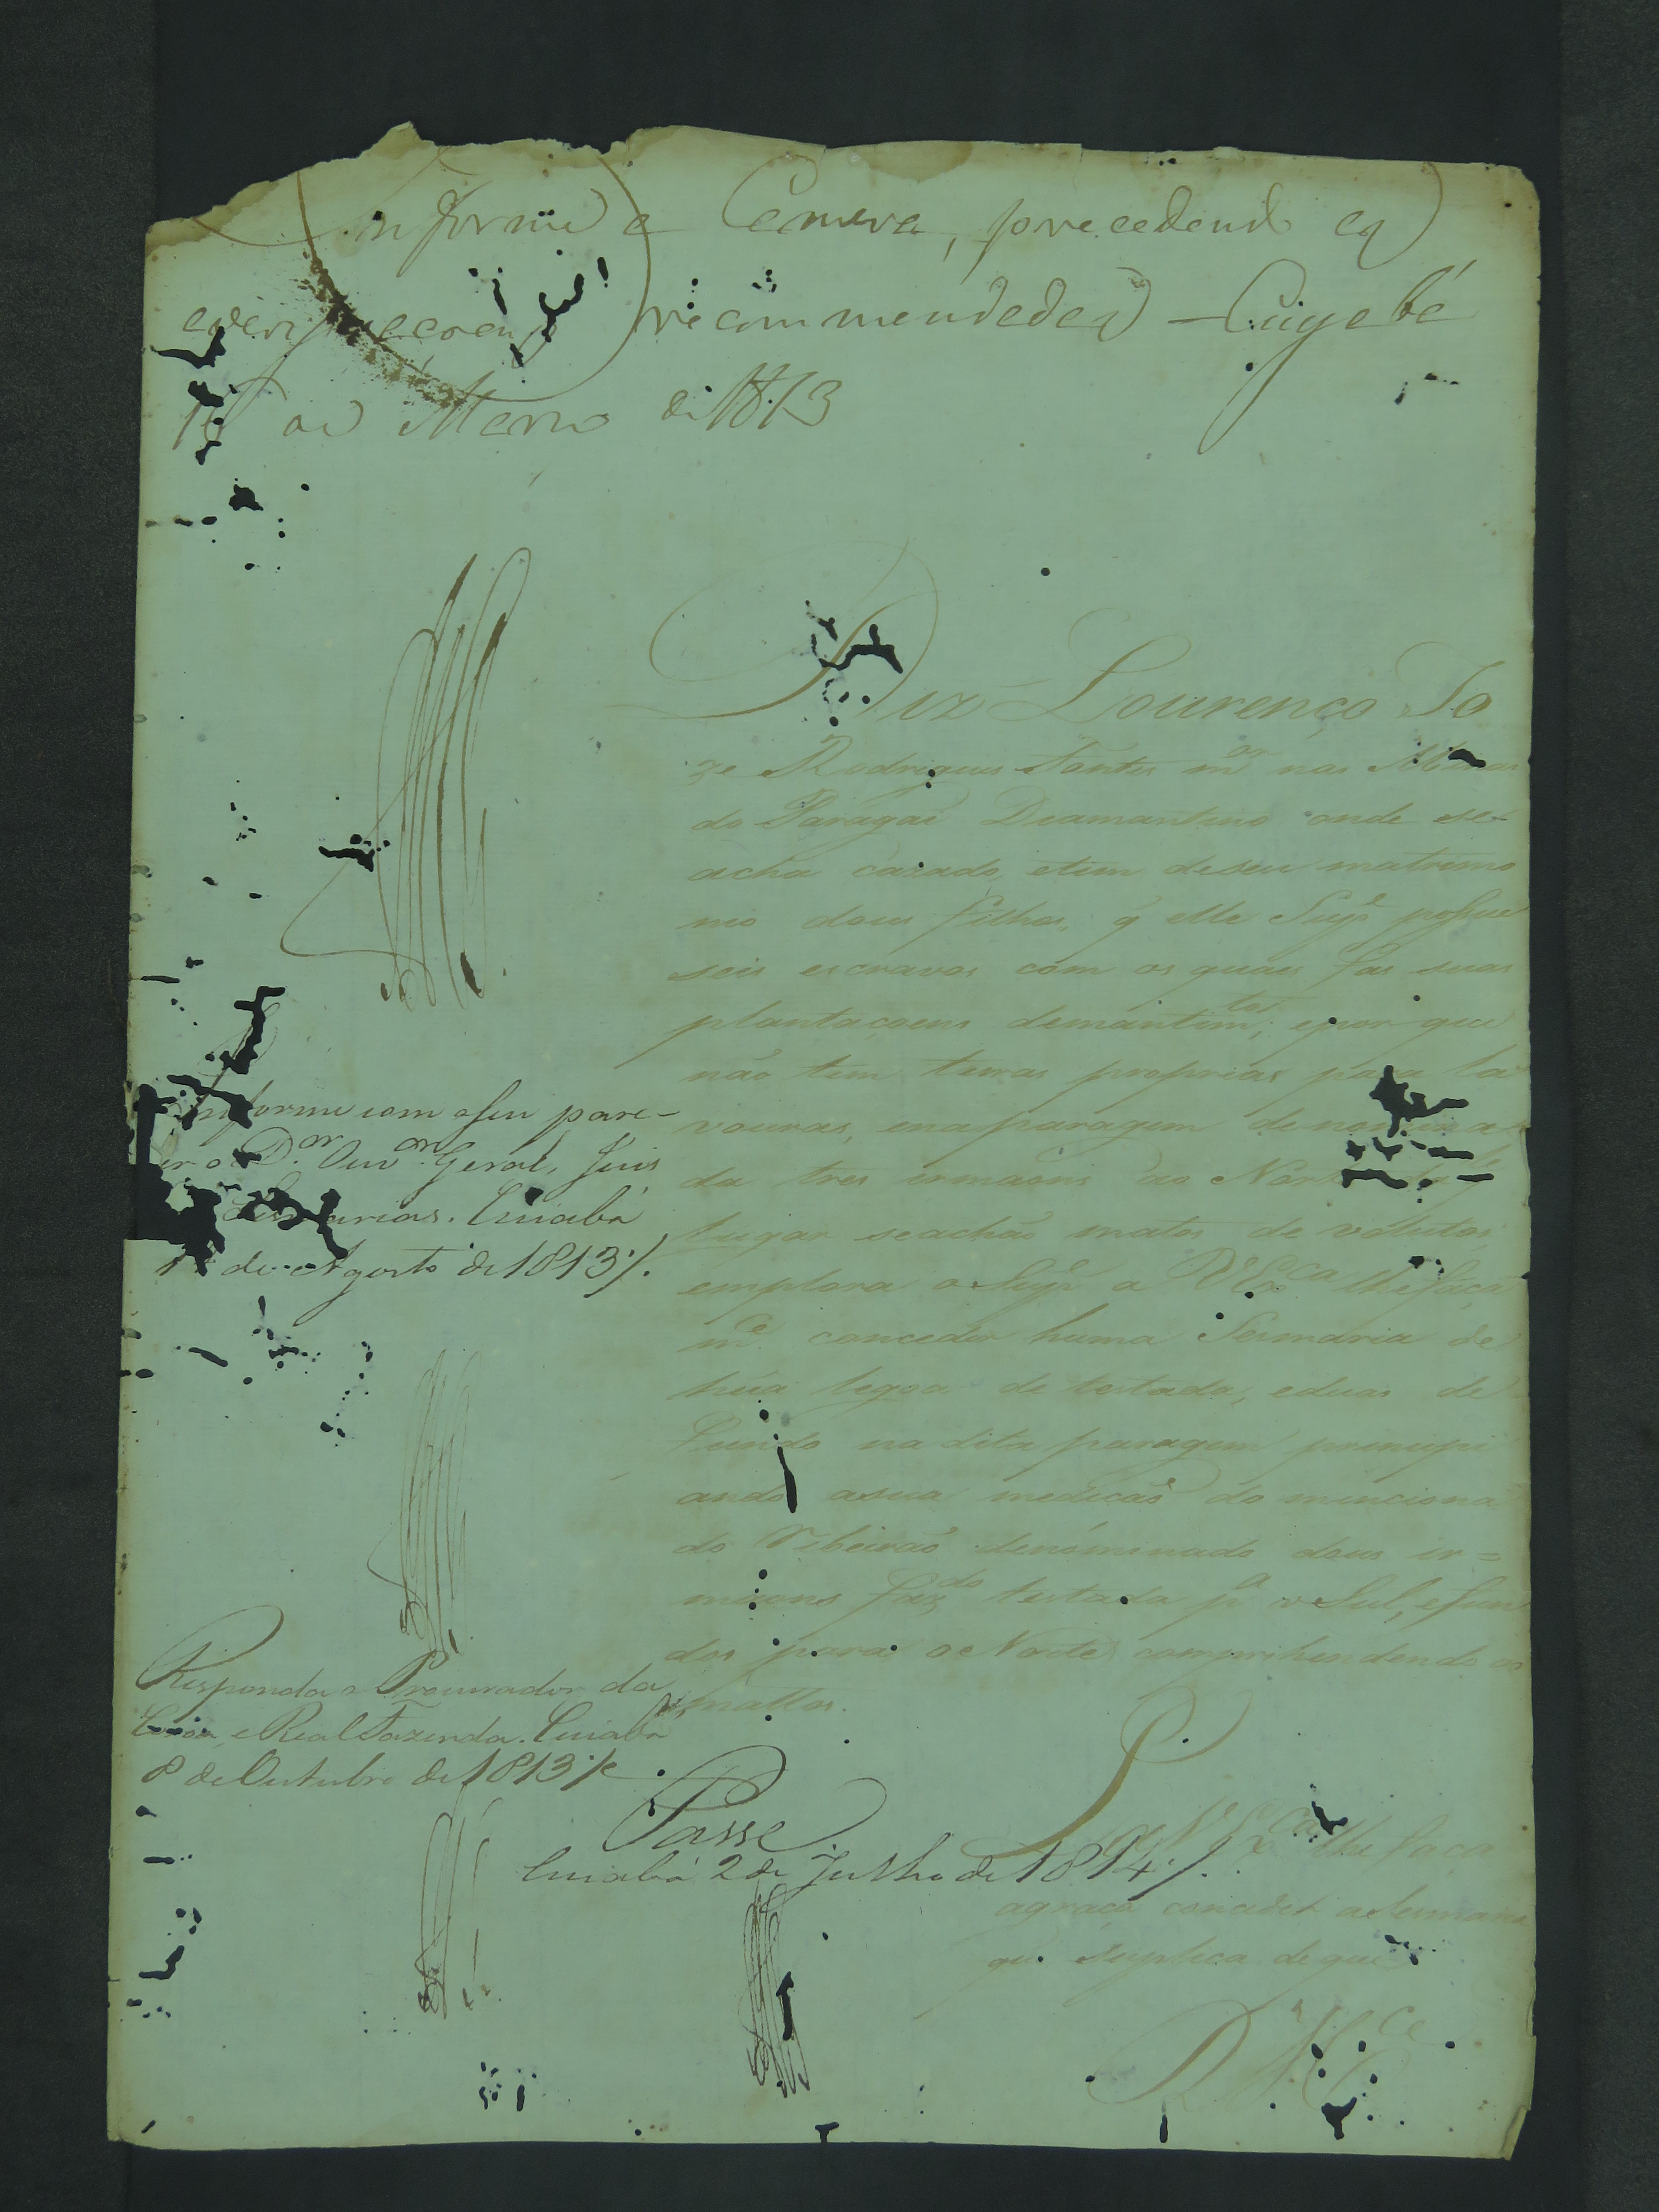 Informe a Camara, precedendo as
averiguaçoens recommendadas - Cuyabá
16 de Março de 1813
Diz Lourenço Jo
ze Rodrigues Fontes m.or nas Minas
do Paragai Diamantino onde se-
acha cazado, etem deseu matrimo
nio dous filhos, q elle Sup.e possue
seis escravos com os quaes fas suas
plantaçoens demantim.tos, epor que
não tem terras proprias para la
vouras, enaparagem denomina
da tres irmaons ao Norte
lugar seachão matos de volutos
emplora o Sup.e a V Ex.ca lhefaça
m.ce conceder huma Sesmaria de
hũa legoa de testada, eduas de
Fundo na dita paragem principi
ando asua medicão do menciona
do Ribeirão denominado dous ir=
maons faz.do testada p.a o Sul, efun
dos para o Norte comprehendendo os
mattos.
Informe com oseu pare-
cer o D.or Ouv.or Geral, Juis
Sesmarias. Cuiabá
de Agosto de 1813 ./.
Responda o Procurador da
Coroa, e Real Fazenda. Cuiabá
8 de Outubro de 1813 ./.
Passe.
Cuiabá 2 de Julho de 1814 ./.
P.
a V Ex.ca lhe faça
agraça conceder a Sesmaria
que suplica de que
R M.ce